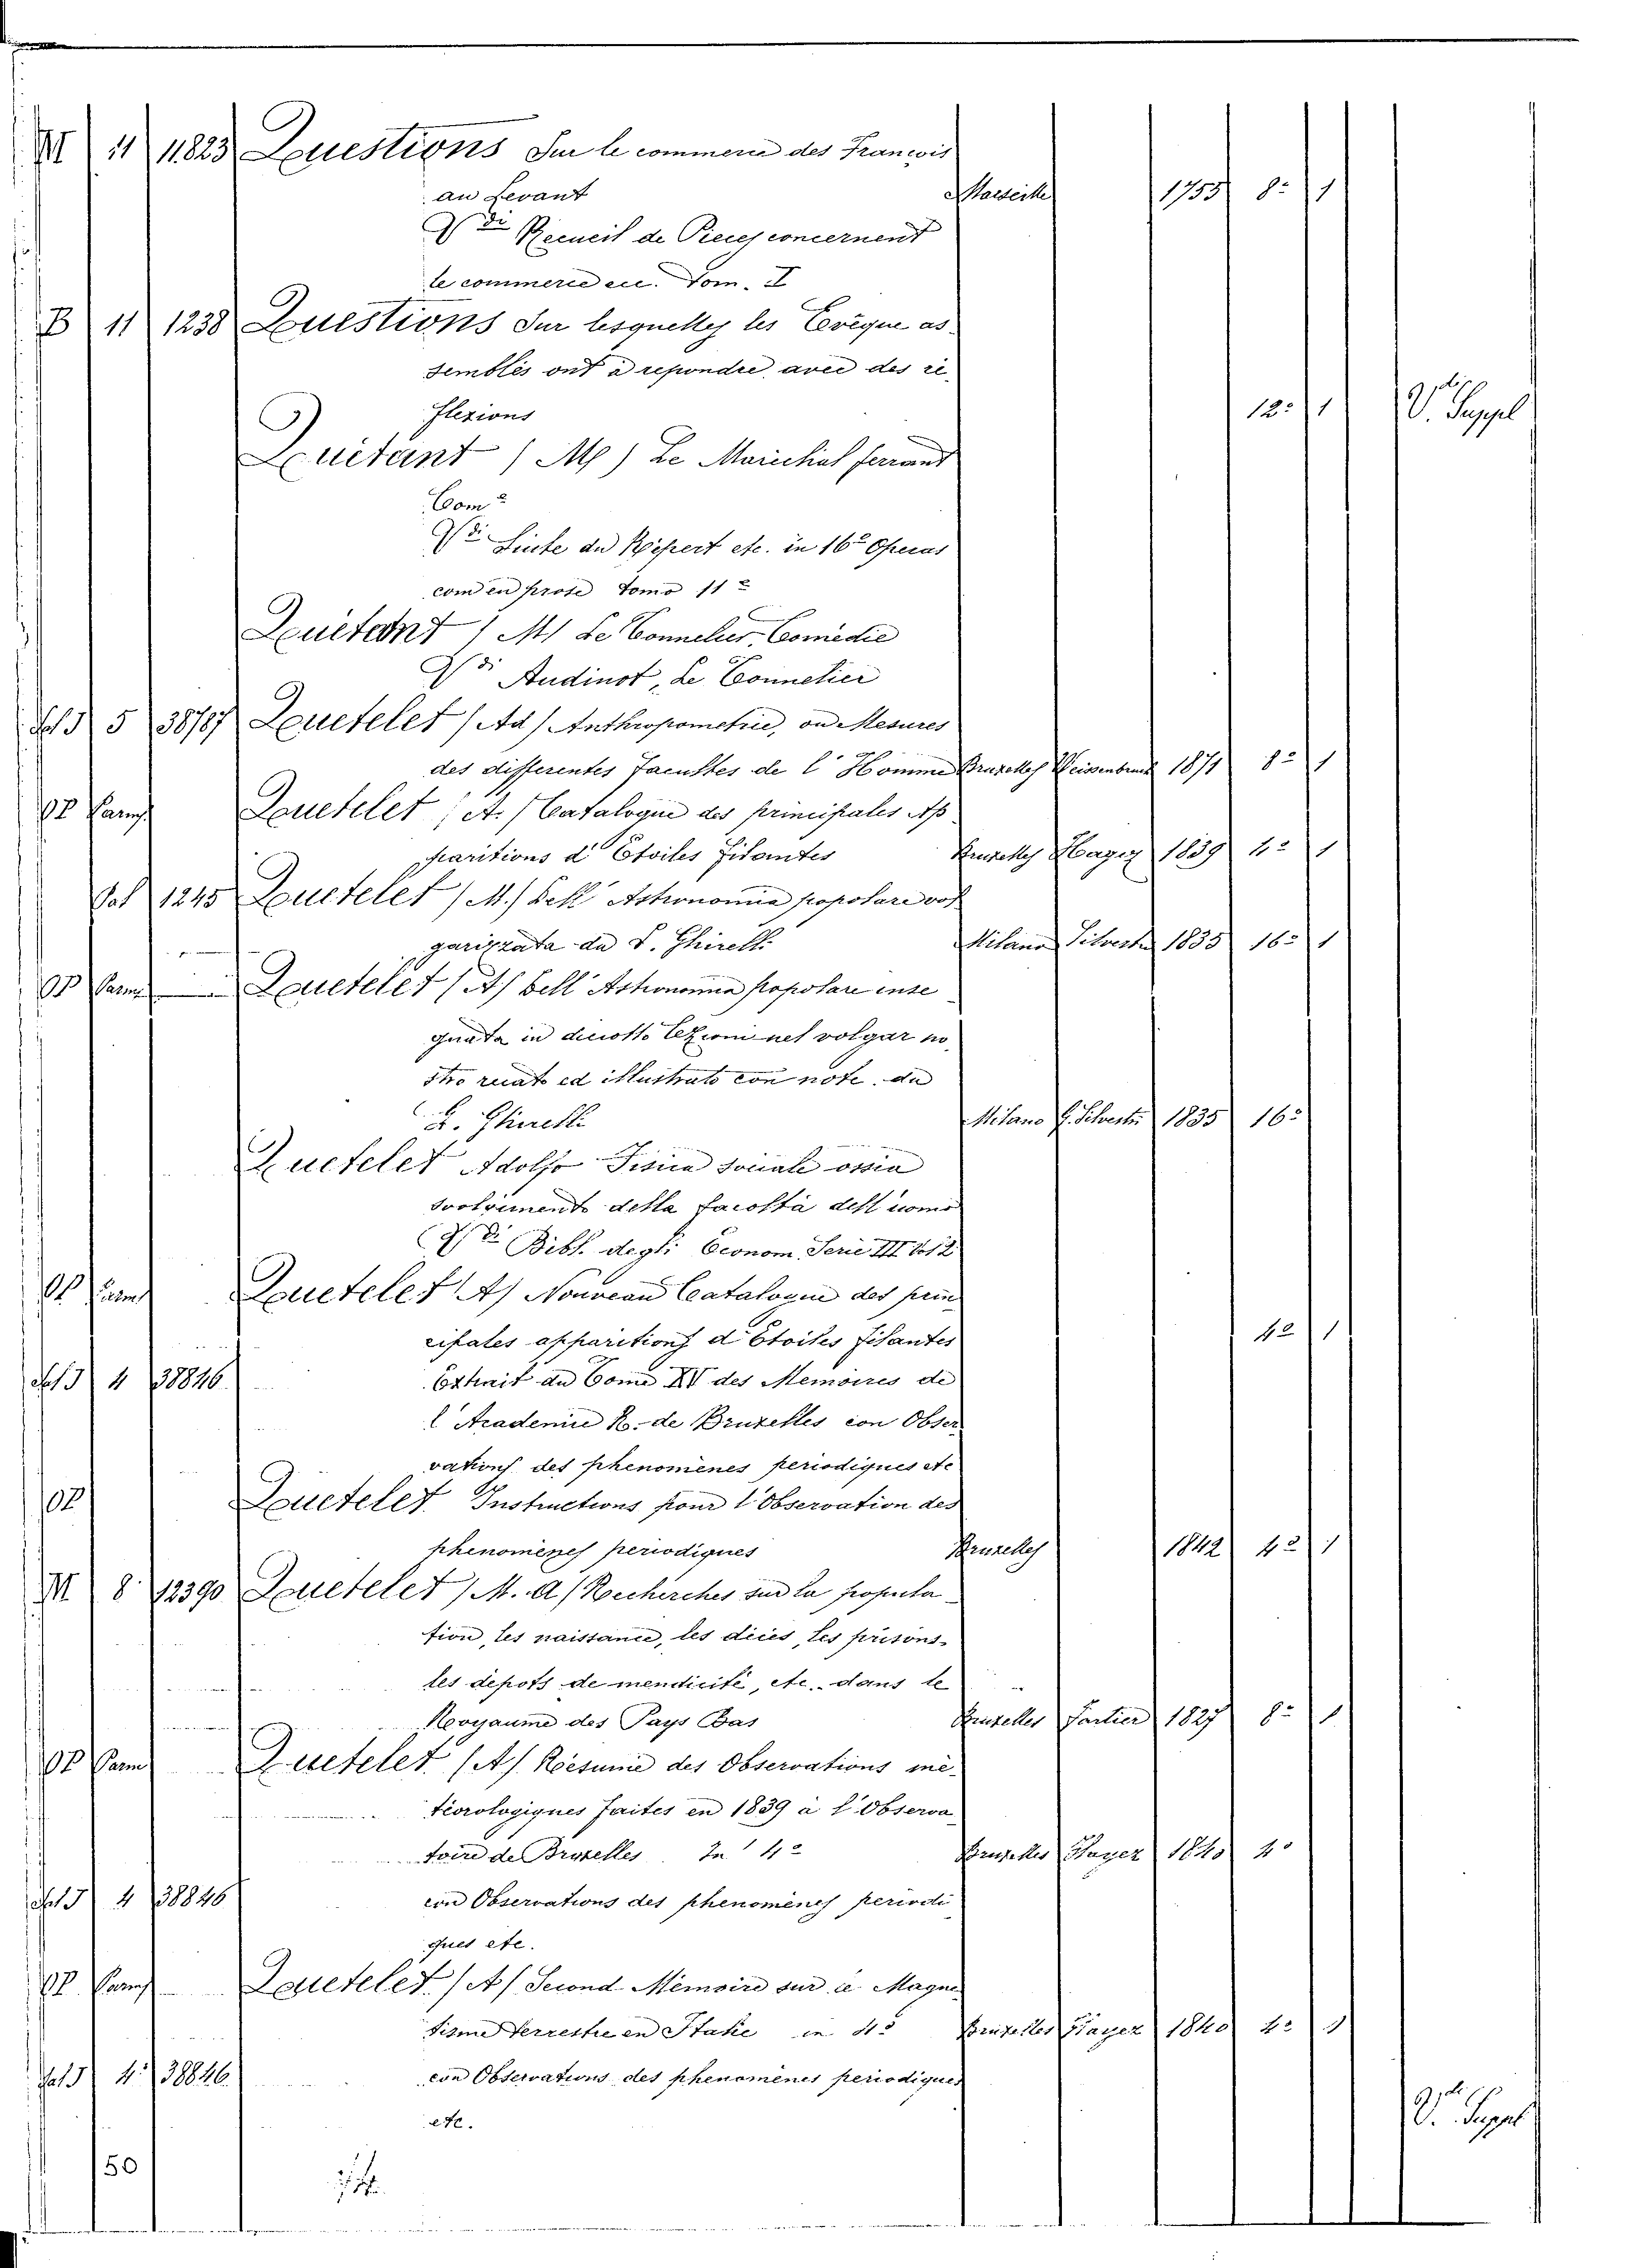 M 11 11823 Questions Sur le commerce des Francois
au Levant Marseille 1755 8º 1
Vdi Recueil de Pieces concernent
le commerce ecc. Tom. I
B 11 1238 Questions Sur lesquelles les Evêque as-
semblés ont a repondre avec des ré-
flexions 12º 1 V. Suppl
Quitant (M) Le Marechal ferrant
Com.e
Vdi Suite du Répert etc. in 16º Operas
com en prose Tomo 11º
Quétant (M) Le Tonnelier, Comédie
Vdi Audinot, Le Tonnelier
5 38787 Quetelet (Ad) Anthropometrie, ou Mesures
des differentes Facultes de l'Homme Bruxelles 1871 8º 1
Quetelet (A.) Catalogue des principales Ap-
paritions d'Etoiles filantes Bruxelles Hayez 1839 4º 1
1245 Quetelet (M.) Dell'Astronomia popolare vol-
garizzata da L. Ghirelli Milano Silvestri 1835 16º 1
Quetelet (A) Dell'Astronomia popolare inse-
gnata in diciotto Lezioni nel volgar no-
stro recato ed illustrato con note da
L. Ghirelli Milano G. Silvestri 1835 16º
Quetelet Adolfo Fisica sociale ossia
svolgimento della facoltà dell'uomo
Vdi Bibl. degli Econom. Serie III Vol 2
Quetelet (A) Nouveau Catalogue des prin-
cipales apparitions d'Etoiles filantes 4º 1
4 38846 Extrait du Tome XV des Memoires de
l'Academie R. de Bruxelles con Obser-
vations des phenomènes periodiques etc
Quetelet Instructions pour l'Observation des
phenomènes periodiques Bruxelles 1842 4º 1
M 8 12390 Quetelet (M. A) Recherches sur la popula-
tion, les naissance, les décés, les prisons,
les depots de mendicité, etc. dans le
Royaume des Pays Bas Bruxelles Tartier 1827 8º 1
Quetelet (A) Résumé des Observations mé-
téorologiques faites en 1839 à l'Observa-
toire de Bruxelles In 4º Bruxelles Hayez 1840 4º
4 38846 con Observations des phenomènes periodi-
ques etc.
Quetelet (A) Second Mémoire sur le Magne-
tisme terrestre en Italie in 4º Bruxelles Hayez 1840 4º 1
4 38846 con Observations des phenomènes periodiques
etc. V. Suppl
50